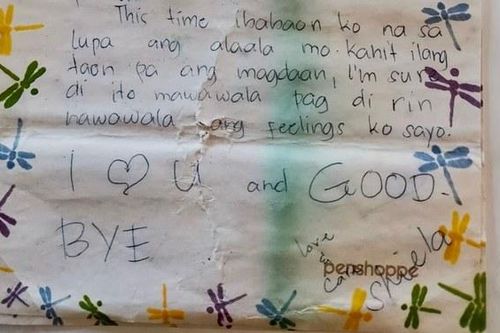 This time ibabaon ko na sa
lupa ang alaala mo. kahit ilang
taon pa ang magdaan, I'm sure
di ito mawawala pag di rin
nawawala ang feelings ko sayo.
I ♡ U and GOOD.
BYE
love
penshoppe
Shiela